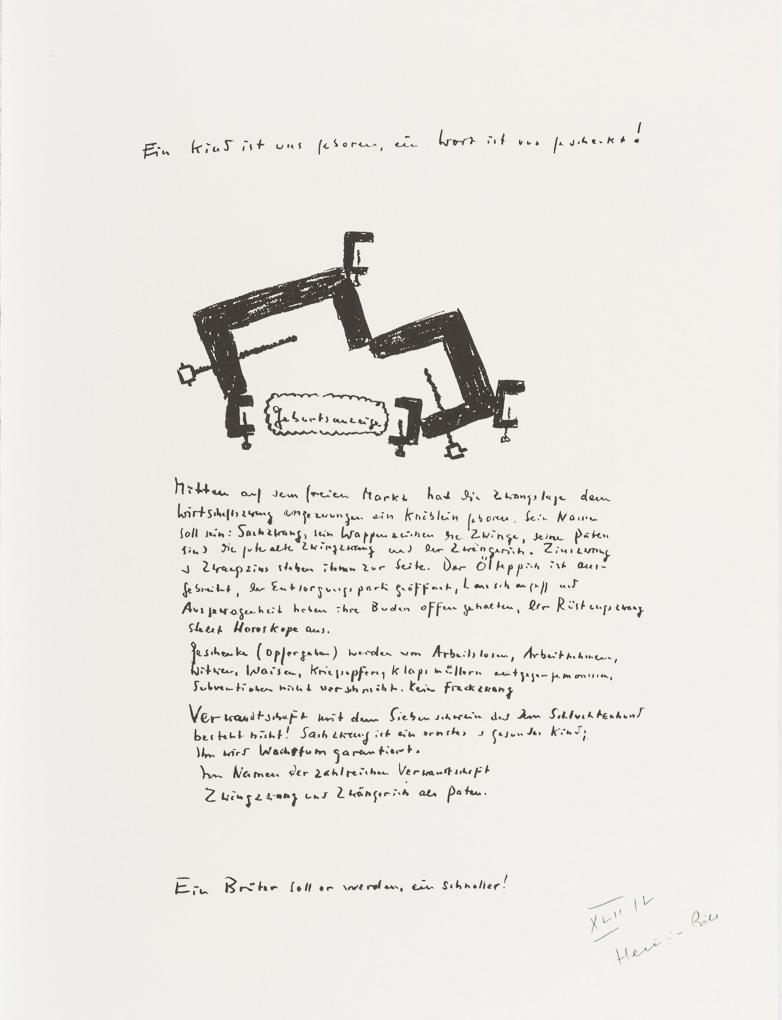 Ein Kind ist uns geboren, ein Wort ist uns geschenkt!
Geburtsanzeige
Mitten auf dem freien Markt hat die Zwangslage dem
Wirtschaftszwang ein Knäblein geboren. Sein Name
soll sein: Sachzwang, sein Wappenzeichen die Zwinge, seine Paten
sind die gute alte Zwingzwang und der Zwängerich. Zinszwang
u Zwangzins stehen ihm zur Seite. Der Ölteppich ist aus-
gebreitet, der Entsorgungspark geöffnet, Lauschangriff und
Ausgewogenheit haben ihre Buden offen gehalten, der Rüstungszwang
stellt Horoskope aus.
Geschenke (Opfergaben) werden von Arbeitslosen, Arbeitnehmern,
Witwen, Waisen, Kriegsopfern, Klapsmüllern entgegengenommen,
Subventionen nicht verschmäht. Kein Frackzwang
Verwandtschaft mit dem Siebenschwein und dem Schluchtenhund
besteht nicht! Sachzwang ist ein ernstes u gesundes Kind;
Ihm wird Wachstum garantiert.
Im Namen der zahlreichen Verwandtschaft
Zwingzwang und Zwängerich als Paten.
Ein Brüter soll er werden, ein schneller!
XLII/L
Heinrich Böll